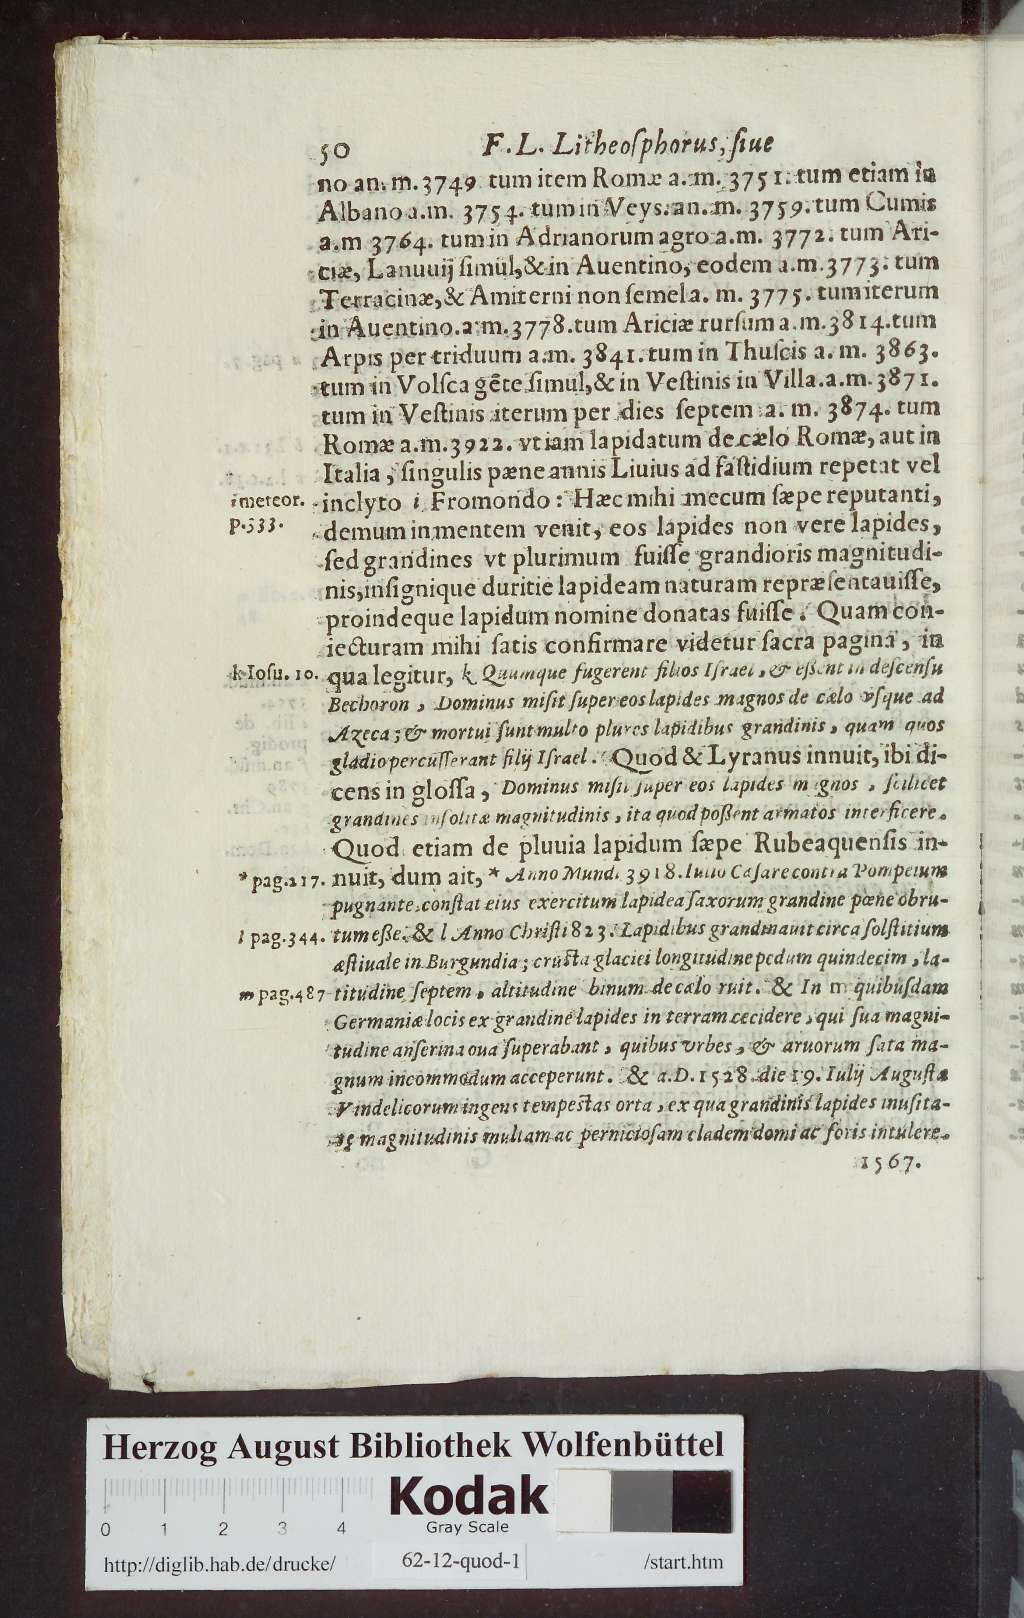 50 F. L. Litheoſphorus, ſiue
no an. m. 3749 tum item Romæ a. m. 3751. tum etiam in
Albano a. m. 3754. tum in Veys. an. m. 3759. tum Cumis
a. m 3764. tum in Adrianorum agro a. m. 3772. tum Ari-
ciæ, Lanuuij ſimul, & in Auentino, eodem a. m. 3773. tum
Terracinæ, & Amiterni non ſemel a. m. 3775. tum iterum
in Auentino. a. m. 3778. tum Ariciæ rurſum a. m. 3814. tum
Arpis per triduum a. m. 3841. tum in Thuſcis a. m. 3863.
tum in Volſca gẽte ſimul, & in Veſtinis in Villa. a. m. 3871.
tum in Veſtinis iterum per dies ſeptem a. m. 3874. tum
Romæ a. m. 3922. vt iam lapidatum de cælo Romæ, aut in
Italia, ſingulis pæne annis Liuius ad faſtidium repetat vel
i meteor.
p. 533.
inclyto i Fromondo: Hæc mihi mecum ſæpe reputanti,
demum in mentem venit, eos lapides non vere lapides,
ſed grandines vt plurimum fuiſſe grandioris magnitudi-
nis, inſignique duritie lapideam naturam repræſentauiſſe,
proindeque lapidum nomine donatas fuiſſe. Quam con-
iecturam mihi ſatis confirmare videtur ſacra pagina, in
k Ioſu. 10.
qua legitur, k Quumque fugerent filios Iſrael, & eßent in deſcenſu
Bechoron, Dominus miſit ſuper eos lapides magnos de cælo vſque ad
Azeca; & mortui ſunt multo plures lapidibus grandinis, quam quos
gladio percuſſerant filij Iſrael. Quod & Lyranus innuit, ibi di-
cens in gloſſa, Dominus miſit ſuper eos lapides magnos, ſcilicet
grandines inſolitæ magnitudinis, ita quod poßent armatos interficere.
Quod etiam de pluuia lapidum ſæpe Rubeaquenſis in-
* pag. 217.
nuit, dum ait, * Anno Mund. 3918. Iulio Cæſare contra Pompeium
pugnante, conſtat eius exercitum lapidea ſaxorum grandine pæne obru-
l pag. 344.
tum eße. & l Anno Chriſti 823. Lapidibus grandinauit circa ſolſtitium
æſtiuale in Burgundia; cruſta glaciei longitudine pedum quindecim, la-
m pag. 487
titudine ſeptem, altitudine binum de cælo ruit. & In m quibuſdam
Germaniæ locis ex grandine lapides in terram cecidere, qui ſua magni-
tudine anſerina oua ſuperabant, quibus vrbes, & aruorum ſata ma-
gnum incommodum acceperunt. & a. D. 1528. die 19. Iulij Auguſtæ
Vindelicorum ingens tempeſtas orta, ex qua grandinis lapides inuſita-
magnitudinis multam ac pernicioſam cladem domi ac foris intulere.
1567.
Herzog August Bibliothek Wolfenbüttel
Kodak
Gray Scale
0 1 2 3 4
http://diglib.hab.de/drucke/ 62-12-quod-1 /start.htm